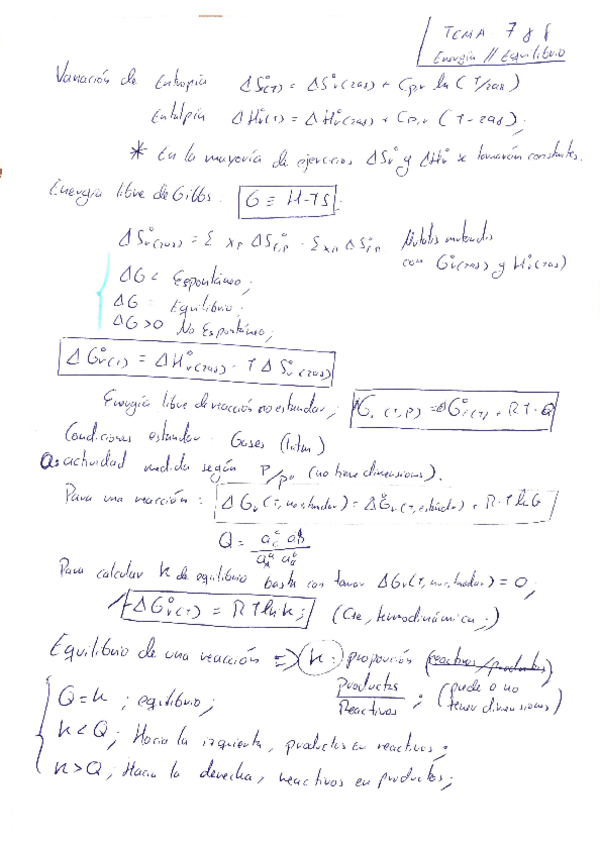 TEMA 7 y 8
Energía // Equilibrio
Variación de Entropía ΔSr°(T) = ΔSr°(298) + Cp,r ln(T/298)
Entalpía ΔHr°(T) = ΔHr°(298) + Cp,r (T-298);
* En la mayoría de ejercicios ΔSr° y ΔHr° se tomarán constantes.
Energía libre de Gibbs. G ≡ H-TS.
ΔSr°(298) = Σ xp ΔS°f,P - Σ xR ΔS°f,R Mutatis mutandis
con Gr°(298) y Hr°(298)
ΔG < Espontáneo;
ΔG = Equilibrio;
ΔG>0 No Espontáneo;
ΔGr°(T) = ΔHr°(298) - T ΔSr°(298)
Energía libre de reacción no estandar; Gr (T,P) = ΔGr°(T) + RT·Q
Condiciones estandar. Gases (1atm)
a: actividad medida según P/p° (no tiene dimensiones).
Para una reacción: ΔGr (T, no standar) = ΔGr°(T, estándar) + R·T lnQ
Q = 
Para calcular K de equilibrio basta con tomar ΔGr(T, no standar) = 0;
-ΔGr°(T) = RT ln K; (Cte, termodinámica;)
Equilibrio de una reacción => K: proporción (reactivos/productos)
Productos / Reactivos ; (puede o no tener dimensiones)
Q = K ; equilibrio;
K < Q ; Hacia la izquierda, productos en reactivos;
K > Q ; Hacia la derecha, reactivos en productos;